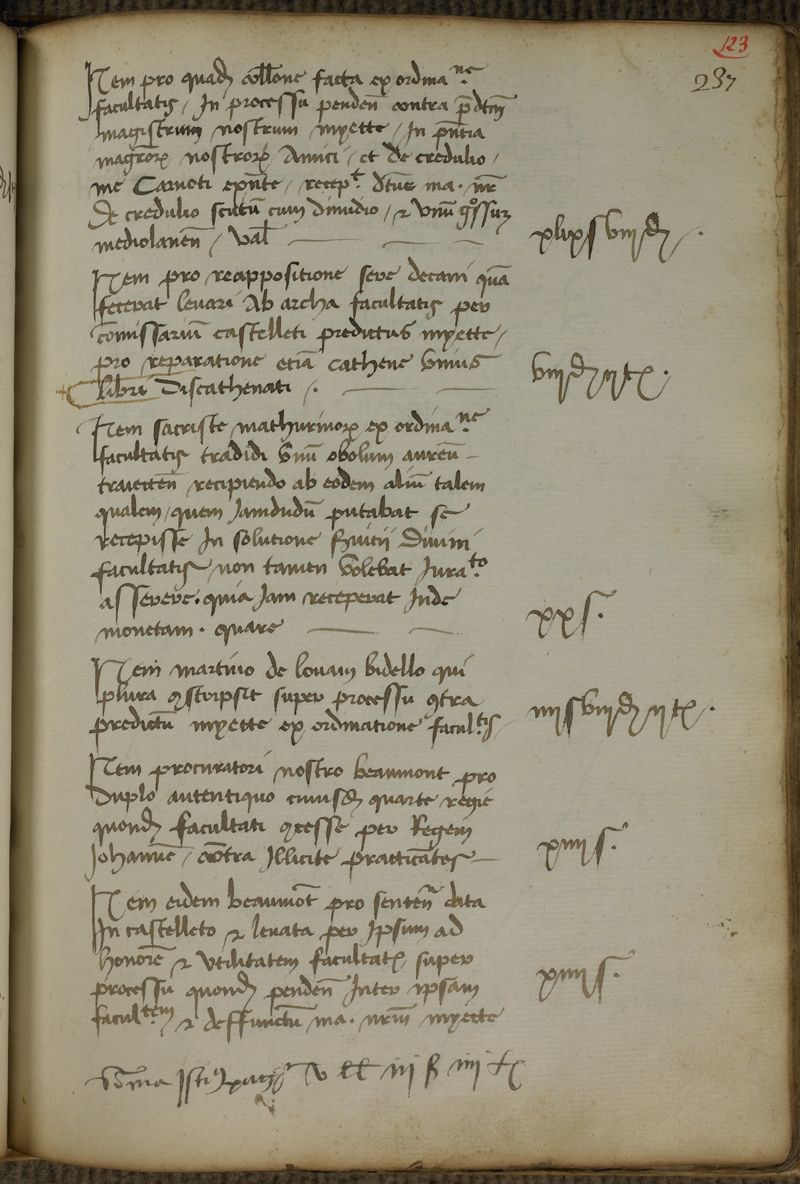 123
237
Item pro quad collone facta ex ordina ne
facultatis / In processu penden contra pdtm
magistrum nostrum myette / In pntia
magrorum nostrorum Amici / et De credulio /
me Caruoti expnte / recept dtus ma. nr
De credulio scutu cum dimidio / et Unu grossu
mediolanen / val xlixs viijd.
Item pro reappositione sere decani qua
fecerat levari Ab archa facultatis per
comissariu castelleti predictus myette /
pro reparatione etia cathene unius viijd ij t.
libri Discathenati /.
Item sacriste mathurinorum ex ordina ne
facultatis tradidi Unu obolum aureu
traiecten recipiendo ab eodem aliu talem
qualem / quem Jamdudu putabat se
recepisse In solutione servitii Divini
facultatis / non tamen volebat Jurato
asserere. quia Jam receperat Inde
monetam. quare xxs.
Item martino de lovain bidello qui
plura conscripsit super processu contra
predictu myette ex ordinatione facultis iiijs viijd ij t.
Item procuratori nostro beaumont pro
Duplo autentiquo cuiusd quarte regie
quond facultati concesse per Regem
Johanne / contra Illicite practicates xiiijs.
Item eidem beaumot pro senten data
In castelleto et levata per Ipsum ad
honore et Utilitatem facultatis super
processu quond penden Inter ipsam xiiijs.
facultem et deffunctu ma. nrm myette
Soma isti pag v ll iij s iiij t